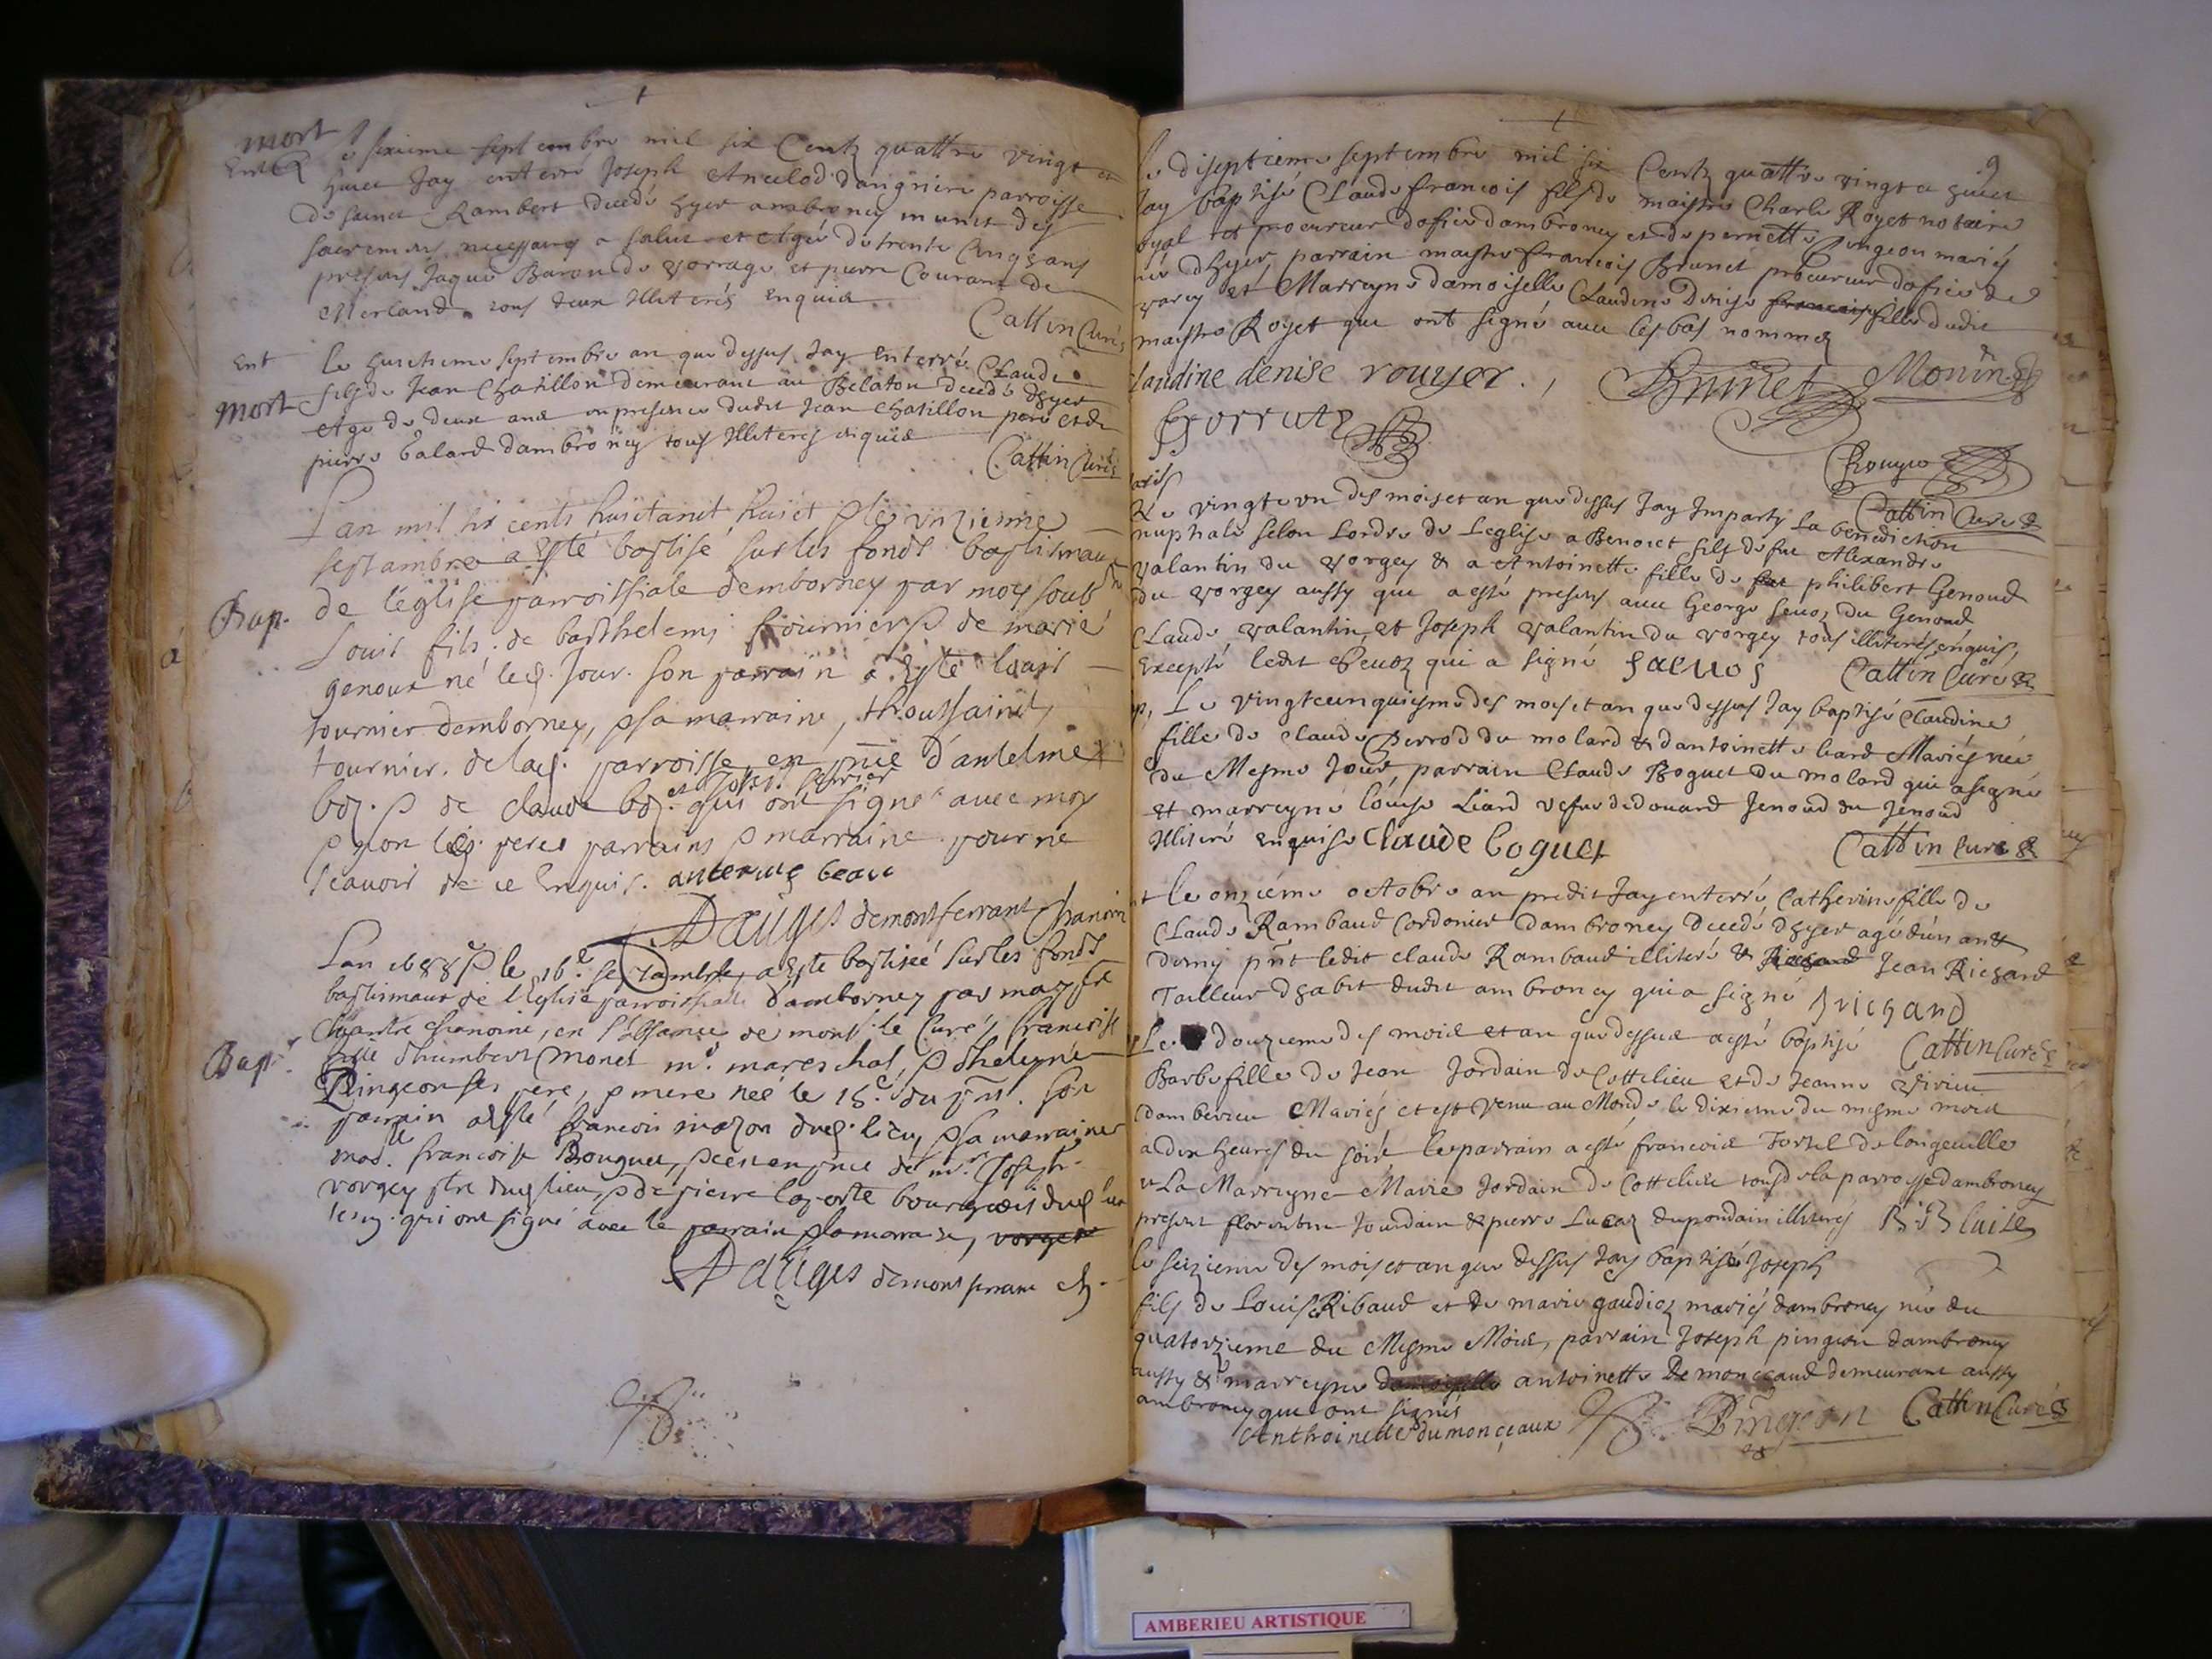 mort
Ent
Le sixieme septembre mil six Centz quattre vingt et
huict Jay enterré Joseph Ancelod daignire parroisse
de sainct Rambert decedé hyer ambroney munit des
sacremens necessaires a salut et Agé de trente Cinq ans
presens Jaque Baron de Vorrage et pierre Courant de
Merland tous deux Illiterés Enquis
Cattin Curé
Ent
Le huictieme septembre an que dessus Jay Enterré Claude
mort
fils de Jean Chatillon demeurant au Belaton decedé dhyer
Age de deux ans en presence dudit Jean Chatillon pere et de
pierre Balard dambroney tous Illiteres enquis
Cattin Curé
Bap.
Lan mil six cents huictanit huict & le unzieme
septambre a Esté baptisé sur les fonds baptismaux
de l'eglise parroissiale demborney par moy soub
Louis fils de barthelemi fournier & de marie
genoux né led. Jour. son parrain a Esté louis
tournier demborney, & sa marraine, thoussainct
tournier. de lad. parroisse, en pnce d'antelme
boz. & de claude boz. et Joseph qui ont signé avec moy
& non les. peres parrains & marraine pour ne
scavoir de ce Enquis. antermes beau
Dauges demontferrant Chanoin
Lan 1688 & le 16e septambre, a Este baptisée sur les fonds
baptismaux de l'Eglise parroissiale damborney par moy
Chantre chanoine, en l'absance de mons. le Curé, francoise
Bapt.
fille dhumbert monet me. mareschal, & dheleyne
Pingeon ses pere, & mere née le 15e du pnt. son
parrain a esté francois mazon dud. lieu, & sa marraine
mad. francoise Bouquet, & ce en pnce de mr. Joseph
vorgey ptre dud. lieu, & de pierre laporte bourgeois dud. lieu
qui ont signé avec le parrain & la marraine, vorgey
Dauges demontferrant ch.
9
Le diseptieme septembre mil six Centz quattre vingt a huict
Jay baptisé Claude francois fils de maistre Charle Royet notaire
royal et procureur dofice dambroney et de pernette Pingeon mariés
né dhyer parrain maistre francois Brunet procureur dofice de
varey et Marreyne damoiselle Claudine Denise francoise fille dudit
maistre Royet qui ont signé avec les bas nommez
claudine denise rouyer. Brunet Monin
Ferrutz
Rouyer
Cattin Curé
Le vingt e un des mois et an que dessus Jay Imparty la benediction
nuphale selon lordre de Leglise a Benoict fils de feu Alexandre
valantin du vorgey & a Antoinette fille de feu philibert Genoud
du vorgey aussy qui a esté presens avec George sevoz du Genoud
Claude valantin, et Joseph valantin du vorgey tous illiterés enquis,
Excepté ledit sevoz qui a signé saevos Cattin Curé
Le vingtcinquiesme des mois et an que dessus Jay baptisé Claudine
fille de Claude Perrod du molard & dantoinette Liard Mariés née
du Mesme Jour, parrain Claude Boguet du molard qui a signé
et marreyne louise Liard vefve dedouard Jenoud du Jenoud
Illiteré Enquise Claude boguet
Cattin Curé
le onzieme octobre an predit Jay enterré Catherine fille de
Claude Rambaud Cordonier dambroney Decedé dhyer agé dun an &
demy pnt ledit claude Rambaud illiteré & Richard Jean Richard
Tailleur dhabit dudit ambroney qui a signé J richard
Cattin Curé
Le douzieme des mois et an que dessus a esté baptisé
Barbe fille de Jean Jordain de Cottelieu et de Jeanne Vivieu
dambevieu Mariés et est Venu au Monde le dixieme du mesme mois
a dix heures du soir le parrain a esté francois Tortel de longeville
et La Marreyne Marie Jordain de Cottelieu tous de la parroisse dambroney
present florentin Jourdain & pierre Lucaz dupondain illiterés
le seizieme des mois et an que dessus Jay baptisé Joseph
fils de Louis Ribaud et de marie gaudioz mariés dambroney né du
quatorzieme du Mesme Mois, parrain Joseph pingeon dambroney
aussy & marreyne damoiselle antoinette De monceaud demeurant aussy
ambroney qui ont signés
Anthoinette dumonçeaux Pingeon Cattin Curé
AMBERIEU ARTISTIQUE